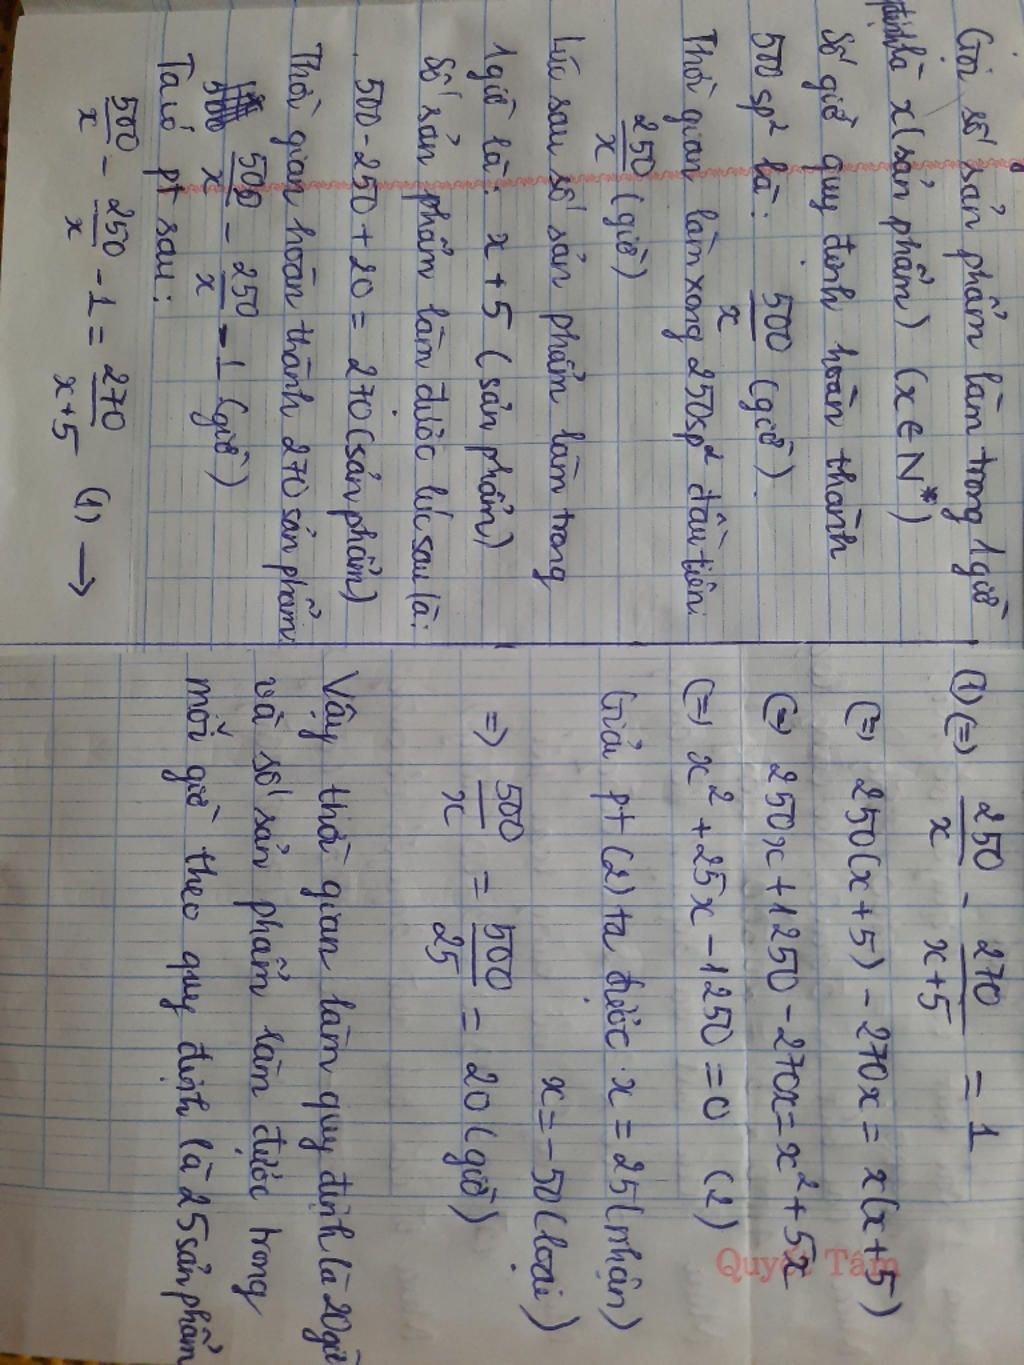 Gọi số sản phẩm làm trong 1 giờ
quy định là x (sản phẩm) (x ∈ N*)
Số giờ quy định hoàn thành
500 sp² là: 500/x (giờ).
Thời gian làm xong 250sp² đầu tiên:
250/x (giờ)
Lúc sau số sản phẩm làm trong
1 giờ là: x + 5 (sản phẩm)
Số sản phẩm làm được lúc sau là:
500 - 250 + 20 = 270 (sản phẩm)
Thời gian hoàn thành 270 sản phẩm:
500/x - 250/x - 1 (giờ)
Ta có pt sau:
500/x - 250/x - 1 = 270/(x+5) (1) →
(1) (=) 250/x - 270/(x+5) = 1
(=) 250(x+5) - 270x = x(x+5)
(=) 250x + 1250 - 270x = x² + 5x
(=) x² + 25x - 1250 = 0 (2)
Quyết Tâm
Giải pt (2) ta được x = 25 (nhận)
x = -50 (loại)
=) 500/x = 500/25 = 20 (giờ)
Vậy thời gian làm quy định là 20 giờ
và số sản phẩm làm được trong
mỗi giờ theo quy định là 25 sản phẩm